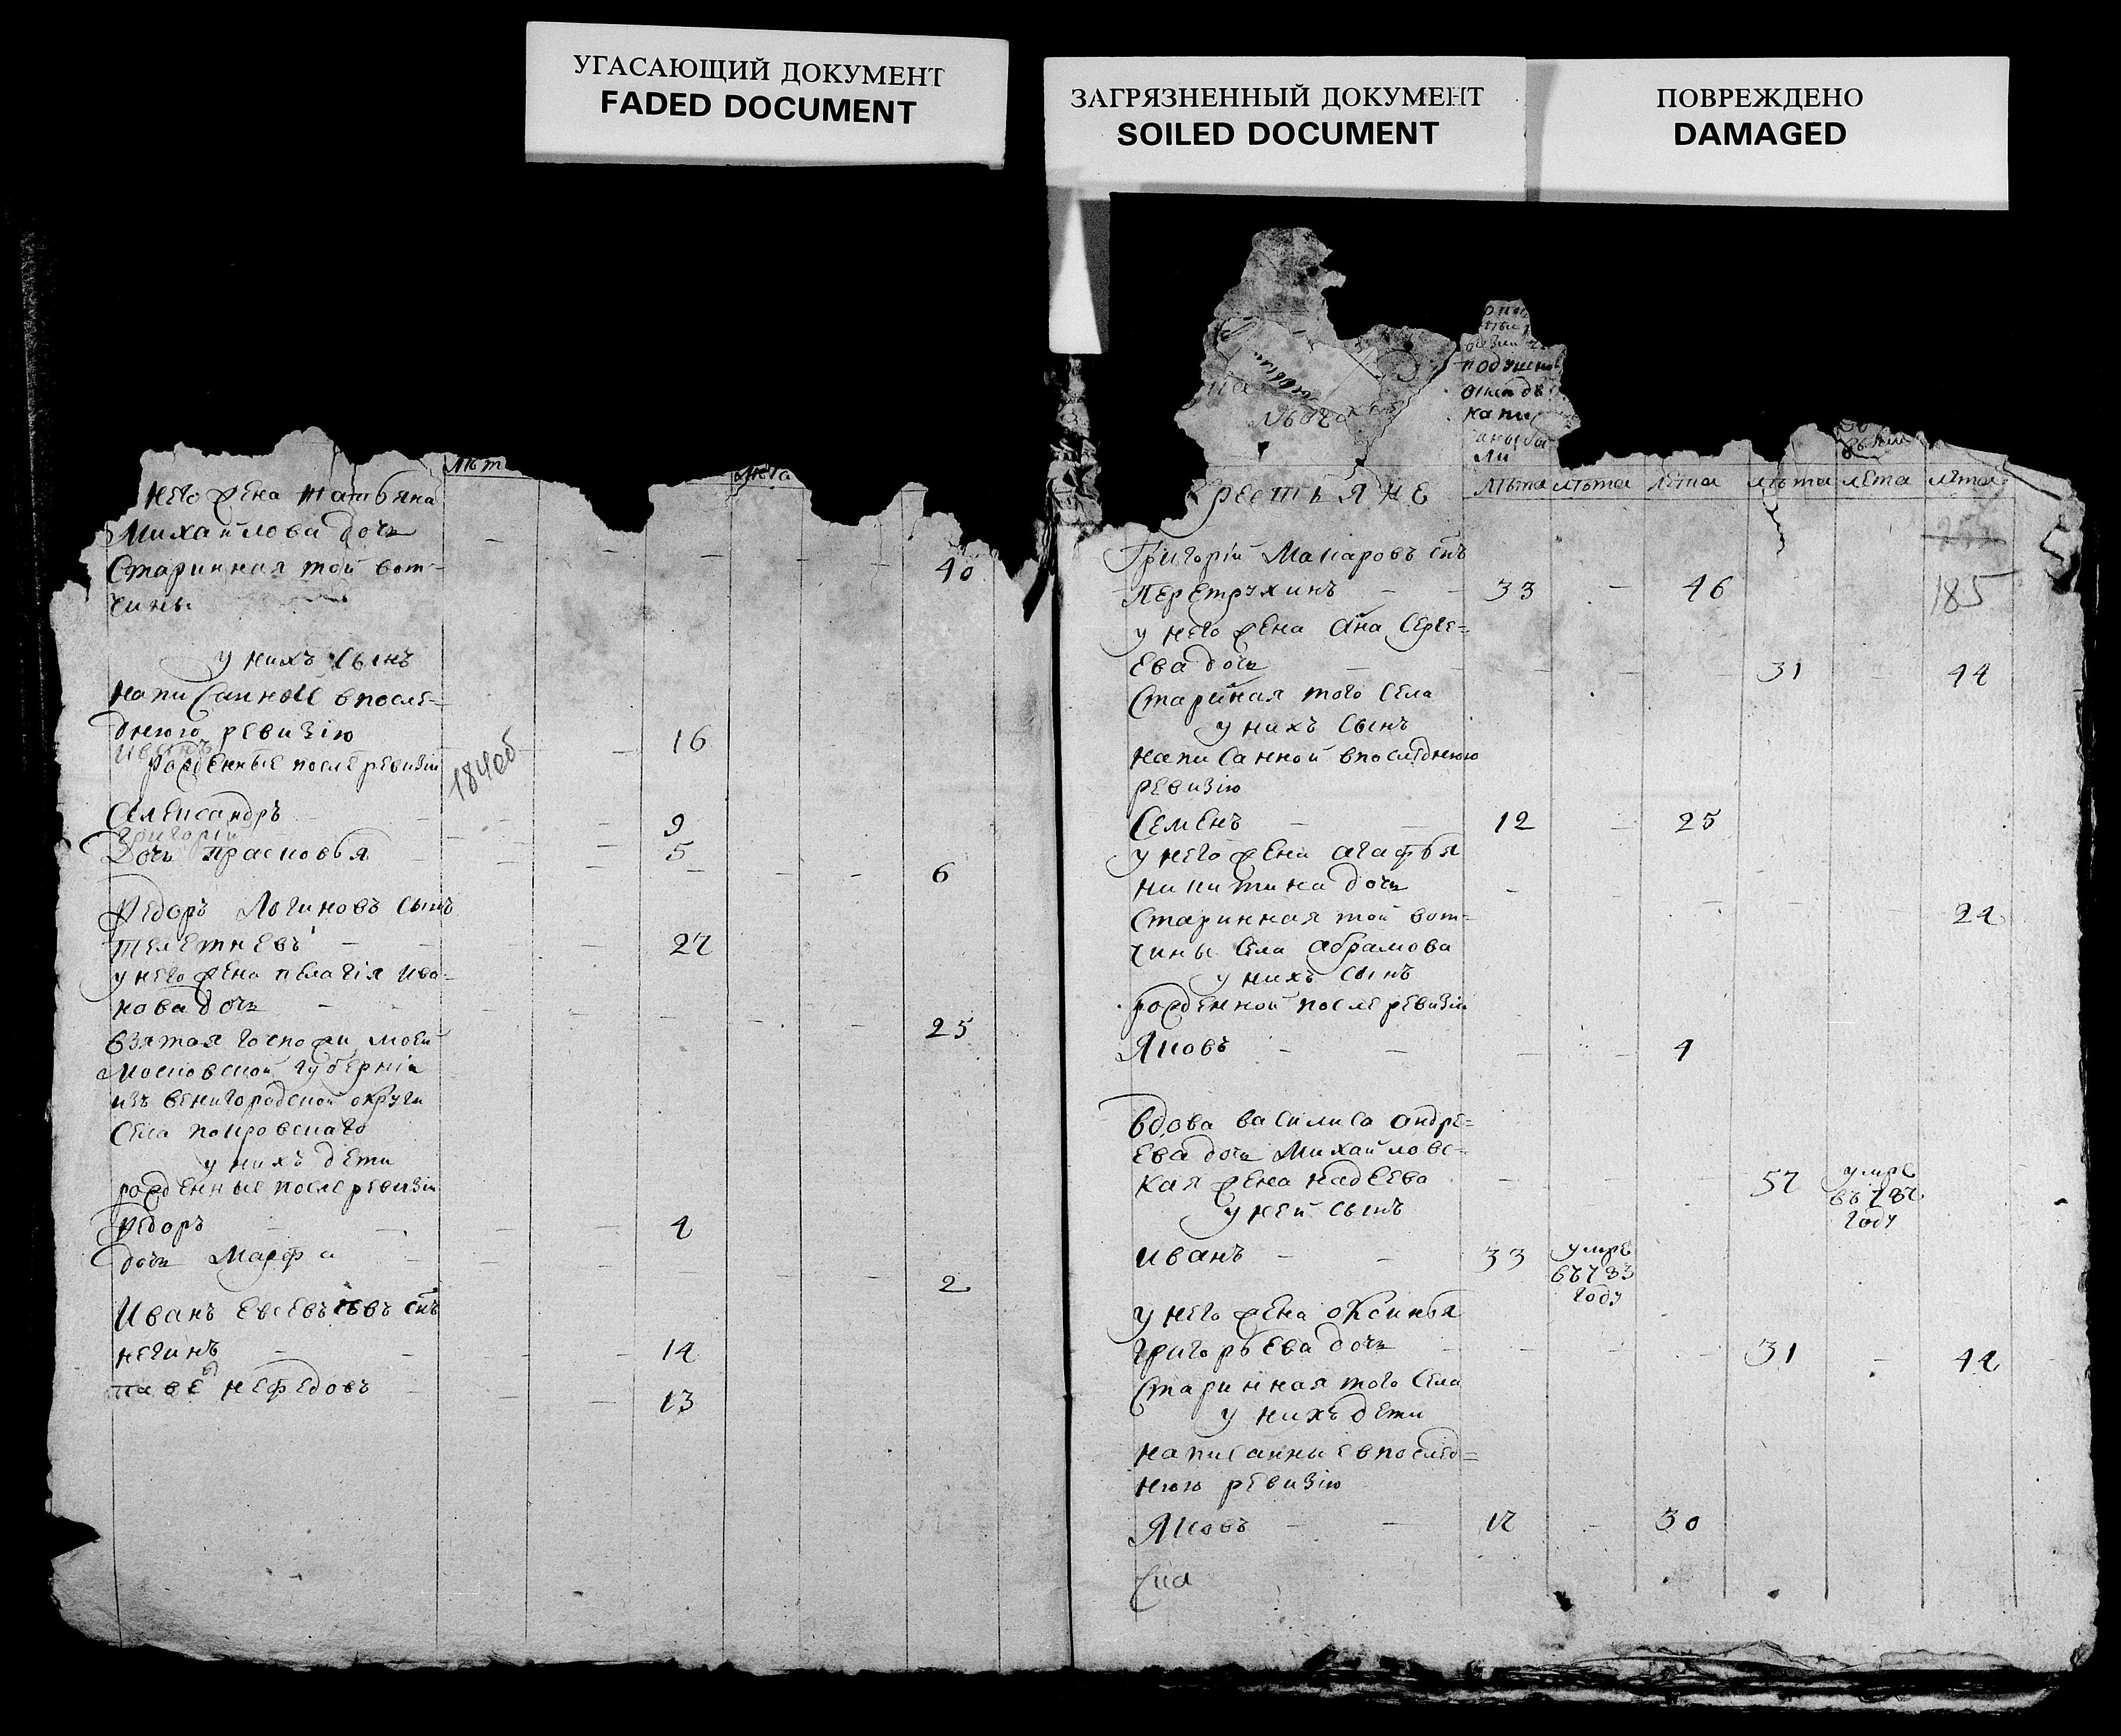 УГАСАЮЩИЙ ДОКУМЕНТ
FADED DOCUMENT
ЗАГРЯЗНЕННЫЙ ДОКУМЕНТ
SOILED DOCUMENT
ПОВРЕЖДЕНО
DAMAGED
лѣт
лѣта
него жена татьяна
Михайлова дочь
Старинная той вот-
чины 40
у нихъ сынъ
написанной впосле=
днюю ревизію
Иванъ 16
рожденные после ревизіи
184об
Александръ 9
Григорій 5
Дочь прасковья 6
Федоръ Логиновъ сынъ
телетневъ 27
у него жена пелагія ива-
нова дочь 25
взятая госпожи моей
московской губерніи
изъ венигородской округи
села покровскаго
у нихъ дети
рожденные после ревизіи
Федоръ 4
дочь Марфа 2
Иванъ Евсевьевъ снъ
негинъ 14
паве нефедовъ 13
подушн
напи
ли
рестьяне
лѣта лѣта лѣта лѣта лѣта лѣта
Григорій Макаровъ снъ
Перетрухинъ 33 46
185
у него жена Ана Серге=
ева дочь 31 44
Старинная того села
у нихъ сынъ
написанной впоследнюю
ревизію
Семенъ 12 25
у него жена агафья
никитина дочь
Старинная той вот= 24
чины села абрамова
у нихъ сынъ
рожденной после ревизіи
Яковъ 4
вдова василиса андре=
ева дочь Михайловс=
кая жена надеева 57 умре
въ 787
году
у ней сынъ
иванъ 33 умре
въ 783
году
у него жена оксинья
григорьева дочь 31 44
Старинная того села
у нихъ дети
написанные впослед=
нюю ревизію
Яковъ 17 30